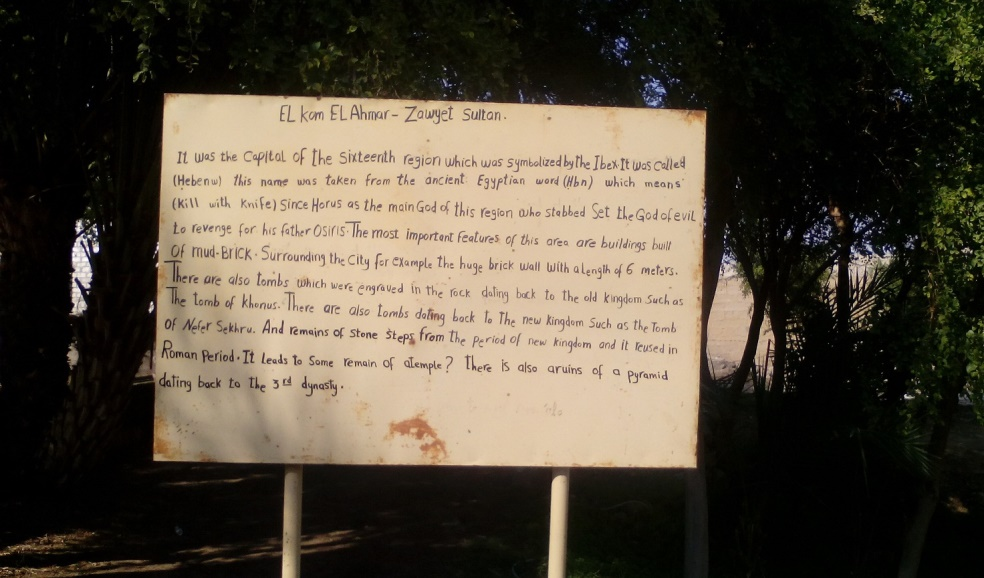 EL kom EL Ahmar - Zawyet Sultan.
It was the Capital of the Sixteenth region which was symbolized by the Ibex It was called
(Hebenw) this name was taken from the ancient Egyptian word (Hbn) which means
(Kill with knife) Since Horus as the main God of this region who stabbed Set the God of evil
to revenge for his father Osiris. The most important features of this area are buildings built
Of mud-Brick. Surrounding the City for example the huge brick wall with a length of 6 meters.
There are also tombs which were engraved in the rock dating back to the old kingdom Such as
The tomb of khonus. There are also tombs dating back to The new kingdom Such as the Tomb
of Nefer Sekhru. And remains of Stone Steps from The period of new kingdom and it reused in
Roman Period. It leads to Some remain of atemple? There is also aruins of a pyramid
dating back to the 3rd dynasty.